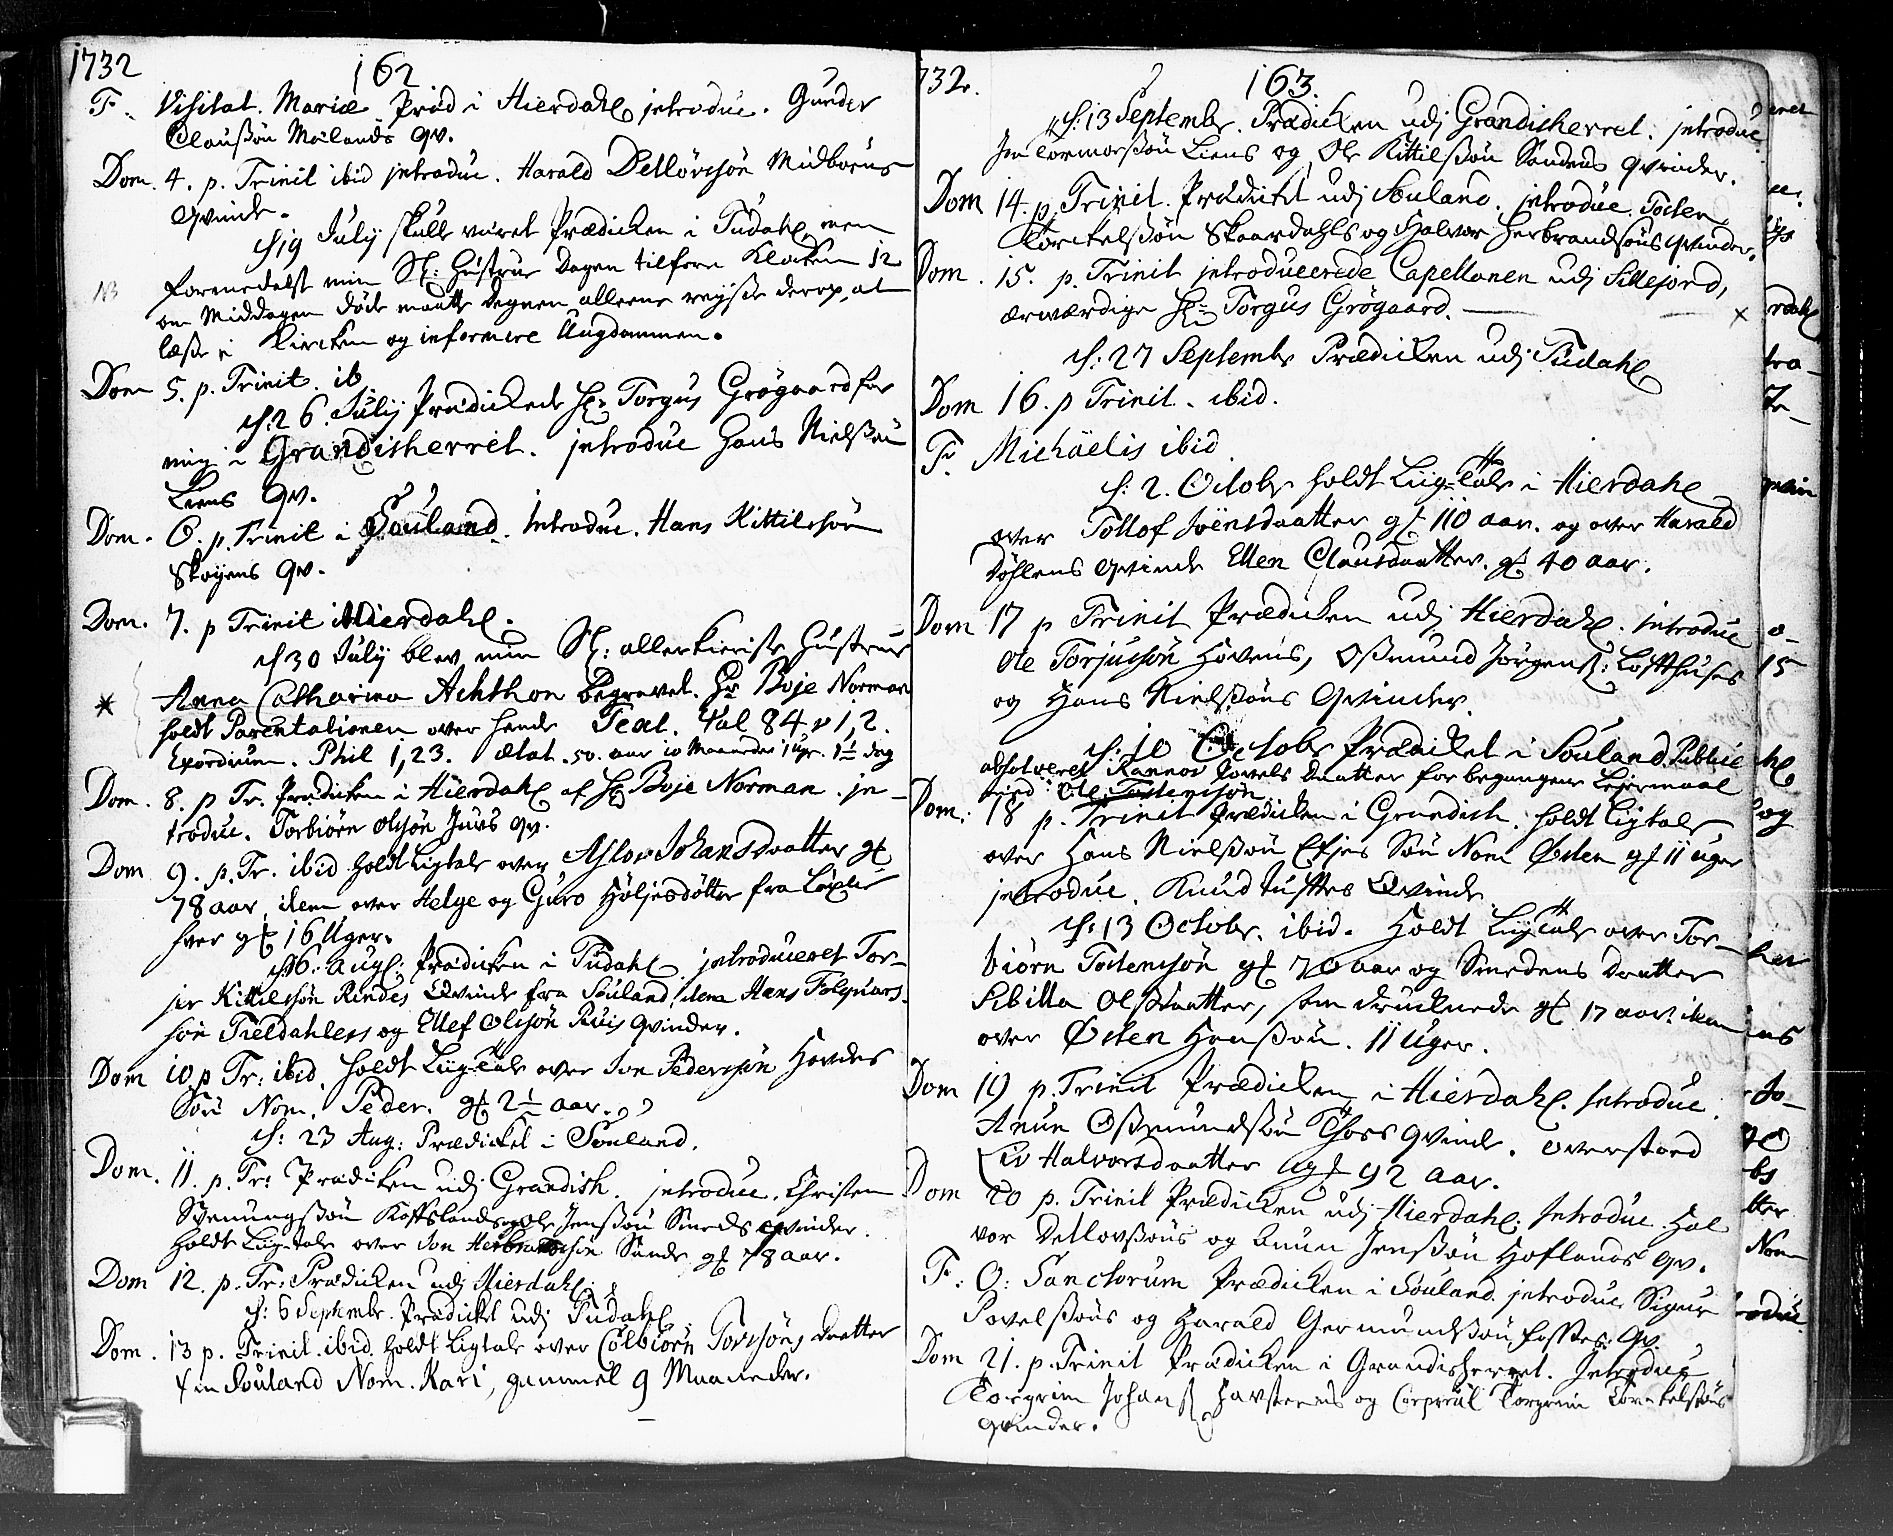 1732
162
F. Visitat. Mariæ Præd i Hierdahl, introduc. Gunder
Claussøn Mælands qv.
Dom. 4. p. Trinit ibid introduc. Harald Detlørssøn Midbøens
Qvinde.
d. 19 July skulle været Prædicken i Tudahl, men
NB formedelst min Sl: Hustrue Dagen tilforn Klocken 12
om Middagen døde maatte Degnen alleene reyse derop, at
læse i Kircken og informere Ungdommen.
Dom 5. p. Trinit. ib.
d: 26. July Prædickede Hr. Torgus Grøgaard for
mig i Grandisherret. introduc Hans Nielssøn
Liens Qv.
Dom. 6. p. Trinit i Souland. Introduc. Hans Kittilssøn
Skoyens Qv.
Dom. 7. p Trinit i Hierdahl.
d 30 July blev min Sl: allerkieriste Hustrue
* Anna Catharina Achthon Begravet. Hr Boje Norman
holdt Parentationen over hende Text. Psal 84 v 1,2.
Exordium. Phil 1,23. Ætat. 50. aar 10 Maaneder 1 Uge. 1 Dag
Dom. 8. p Tr. Prædicken i Hierdahl af Hr Boje Norman. in-
troduc. Torbiørn Olssøn Juvs qv.
Dom 9. p. Tr. ibid holdt Ligtale over Aslov Johansdaatter gl
78 aar, idem over Helge og Guro Høljesdøtter fra
hver gl 16 Uger.
d 16. Aug: Prædicken i Tudahl, introduceret Tor-
jer Kittilssøn Rindes Qvinde fra Souland, idem Hans Folqvars-
søn Tieldahlens og Ellef Olssøn Ruis qvinder.
Dom 10 p Tr: ibid. holdt Liig-Tale over Jon Pederssøn Hovdes
Søn Nom. Peder. gl 2½ aar.
d: 23 Aug: Prædicket i Souland.
Dom. 11. p. Tr: Prædicken udj Grandish. introduc. Christen
Svenungssøn Kaasslands og Ole Jenssøn Smeds qvinder.
holdt Liig-Tale over Jon Herbrandssøn Sunde gl 78 aar.
Dom 12. p. Tr: Prædicken udj Hierdahl.
d: 6 Septembr. Prædicket udj Tudahl.
Dom. 13 p. Trinit. ibid. holdt Ligtale over Colbiørn Torssøns daatter
fra Souland Nom. Kari, gammel 9 Maaneder.
732.
163.
d: 13 Septembr. Prædicken udj Grandisherret. introduc.
Jon Tormorssøn Liens og Ole Kittilssøn Sandens qvinder.
Dom 14. p. Trinit. Prædicket udj Souland. introduc. Tosten
Torckelssøn Skaardahls og Halvor Herbrandsøns qvinder.
Dom. 15. p. Trinit introducerede Capellanen udj Sillejord,
ærværdige Hr: Torgus Grøgaard. ×
d: 27 Septembr Prædicken udj Tudahl
Dom 16. p Trinit. ibid.
F. Michaelis ibid.
d: 2. Octobr holdt Liig-Tale i Hierdahl
over Tollof Svensdaatter gl 110 aar. og over Harald
Døhlens qvinde Ellen Clausdaatter. gl 40 aar.
Dom 17 p Trinit Prædicken udj Hierdahl. introduc
Ole Torjussøn Hovens, Ossmund Jørgens: Loffthuses
og Hans Nielssøns Qvinder.
d: 10 Octobr Prædicket i Souland. Public
absolveret Rannov Povels Daatter for begangene Leiermaal
med Ole Tostenssøn
Dom: 18 p. Trinit Prædicken i Grandish. holdt Ligtale
over Hans Nielssøn Efjes Søn Nom Østen gl 11 uger
introduc. Knud Tufftes Qvinde.
d: 13 Octobr. ibid. Holdt Liig-Tale over Tor-
biørn Tostenssøn gl 70 aar og Smedens Daatter
Sibilla Olsdaatter, som druknede gl 17 aar. idem
over Østen Hanssøn. 11 Uger.
Dom 19 p. Trinit Prædicken i Hierdahl. Introduc.
Anun Ossmundsøn Thors qvinde. overstaaed
Liv Halvorsdaatter gl 92 aar.
Dom 20 p. Trinit Prædicken udj Hierdahl: Introduc. Hal
vor Detlovssøns og Anun Jenssøn Hoflands qv.
F. O: Sanctorum Prædicken i Souland introduc Sigur
Povelssøns og Harald Germundssøn Fosses. Qv.
Dom 21. p. Trinit Prædicken i Grandisherret. Introduc
Torgrim Johans: Havsteens og Corporal Torgrim Torckelssøns
qvinder.